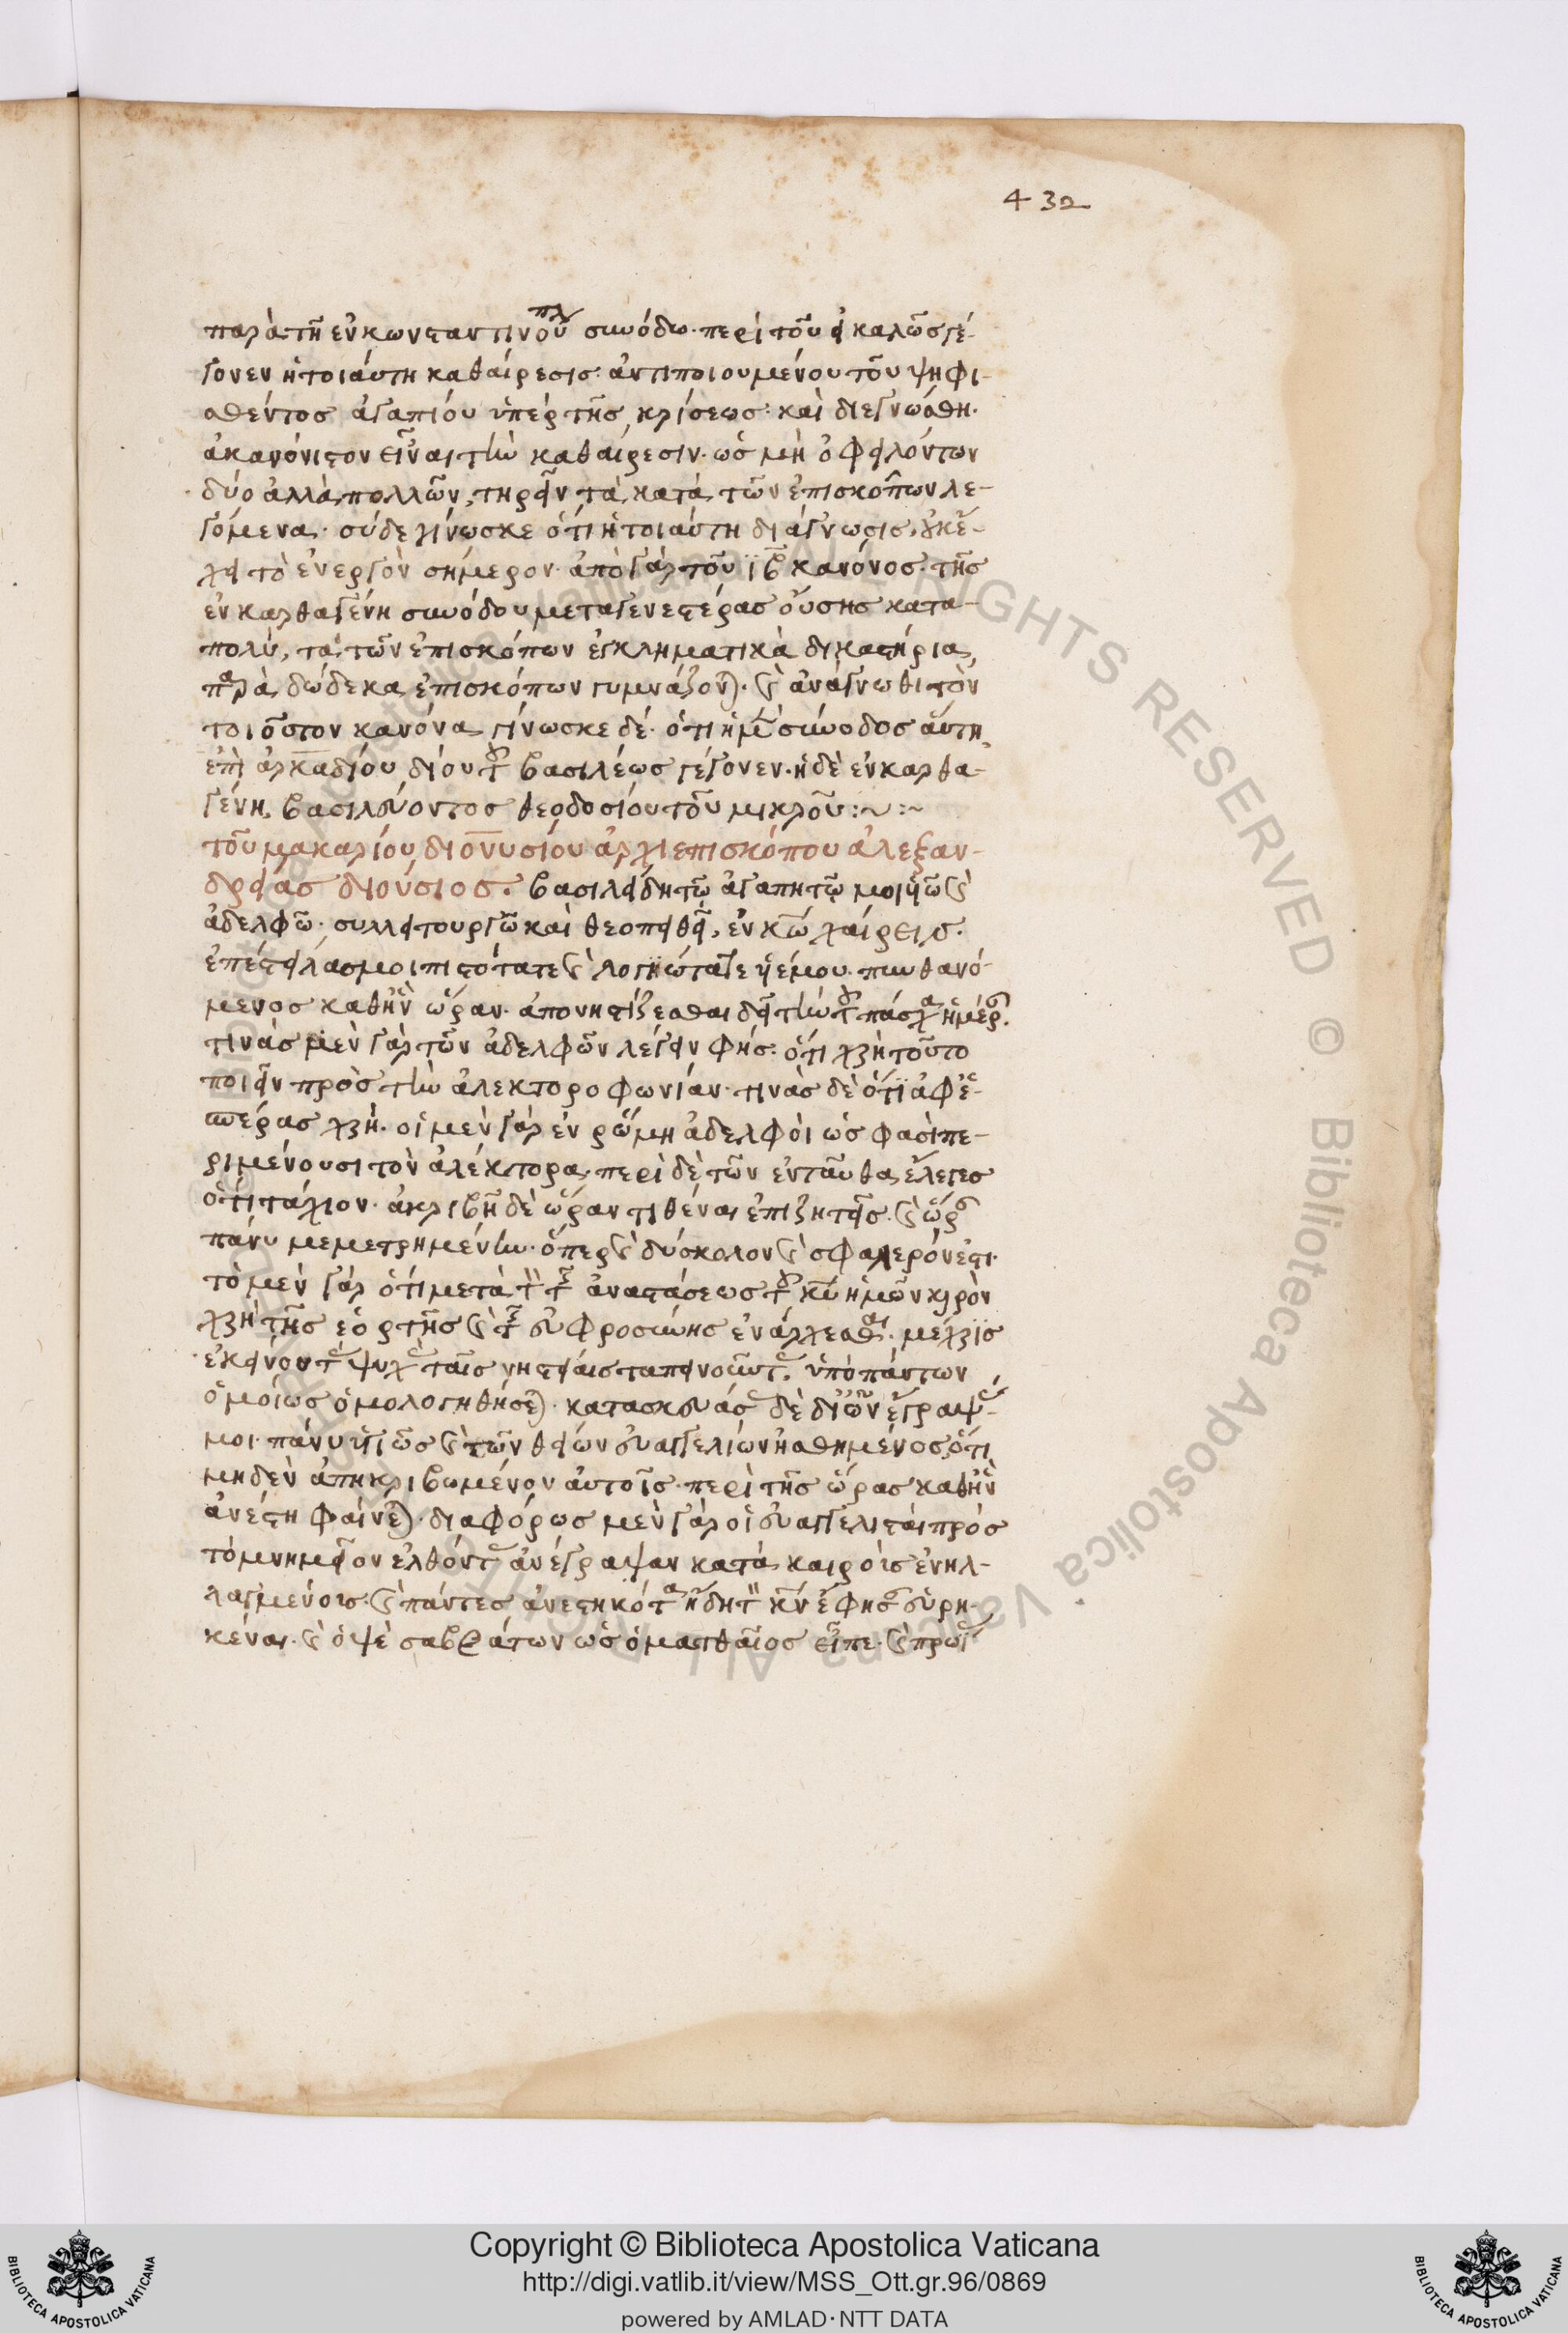 432
παρὰ τῆ ἐν κωνσταντινουπλ συνόδω· περὶ τοῦ εἰ καλῶς γέ-
γονεν ἡ τοιαύτη καθαίρεσις· ἀντιποιουμένου τοῦ ψηφι-
σθέντος ἀγαπίου ὑπὲρ τῆς κρίσεως· καὶ διεγνώσθη·
ἀκανόνιστον εἶναι τὴν καθαίρεσιν· ὡς μὴ ὀφειλόντων
δύο ἀλλὰ πολλῶν, τηρεῖν τὰ κατὰ τῶν ἐπισκόπων λε-
γόμενα· σὺ δὲ γίνωσκε ὅτι ἡ τοιαύτη διάγνωσις, οὐκ ἔ-
χει τὸ ἐνεργὸν σήμερον· ἀπὸ γὰρ τοῦ ιβ κανόνος· τῆς
ἐν καρθαγένη συνόδου μεταγενεστέρας οὔσης κατα-
πολὺ, τὰ τῶν ἐπισκόπων ἐγκληματικὰ δικαστήρια,
παρὰ δώδεκα ἐπισκόπων γυμνάζον)· ϗ ἀνάγνωθι τὸν
τοιοῦτον κανόνα, γίνωσκε δέ· ὅτι ἡ μ σύνοδος αὕτη,
ἐπὶ ἀρκαδίου δίου τ βασιλέως γέγονεν· ἡ δὲ ἐν καρθα-
γένη, βασιλεύοντος θεοδοσίου τοῦ μικροῦ :~ :~
τοῦ μακαρίου διονυσίου ἀρχιεπισκόπου ἀλεξαν-
δρείας διούσιος. βασιλείδη τῶ ἀγαπητῶ μοι ὑῶ ϗ
ἀδελφῶ· συλλειτουργῶ καὶ θεοπειθεῖ, ἐν κω χαίρειν.
ἐπέστειλάς μοι πιστότατε ϗ λογιώτατε ὑὲ μου· πυνθανό-
μενος καθ' ἣν ὥραν· ἀπονηστίζεσθαι δεῖ τὴν τ πάσχα ἡμέρ.
τινὰς μὲν γὰρ τῶν ἀδελφῶν λέγειν φής· ὅτι χρὴ τοῦτο
ποιεῖν πρὸς τὴν ἀλεκτοροφωνίαν· τινὰς δὲ ὅτι ἀφ' ἑ-
σπέρας χρή· οἱ μὲν γὰρ ἐν ῥώμη ἀδελφοὶ ὡς φασὶ πε-
ριμένουσι τὸν ἀλέκτορα, περὶ δὲ τῶν ἐνταῦθα ἔλεγες
ὅτι τάχιον· ἀκριβῆ δὲ ὥραν τιθέναι ἐπιζητεῖς· ϗ ὥρ
πάνυ μεμετρημένην· ὅπερ ϗ δύσκολον ϗ σφαλερόν ἐστι·
τὸ μὲν γὰρ ὅτι μετὰ τ τ ἀναστάσεως τ κυ ἡμῶν καιρὸν
χρὴ τῆς ἑορτῆς ϗ τ εὐφροσύνης ἐνάρχεσθαι· μέχρις
ἐκείνου τ ψυχ ταῖς νηστείαις ταπεινοῦντ, ὑπὸ πάντων
ὁμοίως ὁμολογηθήσε)· κατασκευάσ δὲ δι' ὧν ἔγραψ-
μοι· πάνυ ὑγιῶς ϗ τῶν θείων εὐαγγελίων ἠσθημένος ὅτι
μηδὲν ἀπηκριβωμένον αὐτοῖς· περὶ τῆς ὥρας καθ' ἣν
ἀνέστη φαίνε)· διαφόρως μὲν γὰρ οἱ εὐαγγελισταὶ πρὸς
τὸ μνημεῖον ἐλθόντ ἀνέγραψαν κατὰ καιροὺς ἐνηλ-
λαγμένους· ϗ πάντες ἀνεστηκότα ἤδη τ κν ἔφησ εὑρη-
κέναι· ϗ ὀψὲ σαββάτων ὡς ὁ ματθαῖος εἶπε· ϗ πρωῒ
Copyright © Biblioteca Apostolica Vaticana
http://digi.vatlib.it/view/MSS_Ott.gr.96/0869
powered by AMLAD·NTT DATA